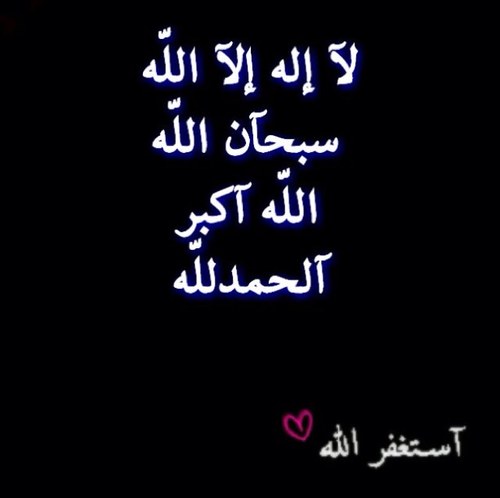 لآ إله إلآ اللّه
سبحآن اللّه
اللّه آكبر
آلحمدللّه
آستغفر الله